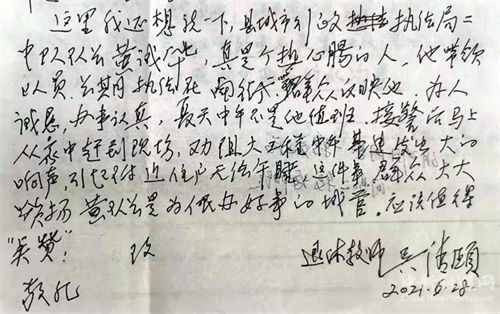 这里我还想说一下,县城市行政执法局二
中队队长黄诚华,真是个热心肠的人,他带领
队员长期执法在南街,群众反映他,为人
诚恳,办事认真,夏天中午不是他值班,接警后马上
从家中赶到现场,劝阻大
响声,引起附近住户无法午睡,这件事,群众大大
赞扬黄队长是为民办好事的城管。应该值得
“点赞”! 致
敬礼 退休教师 吴清颐
2021.6.28